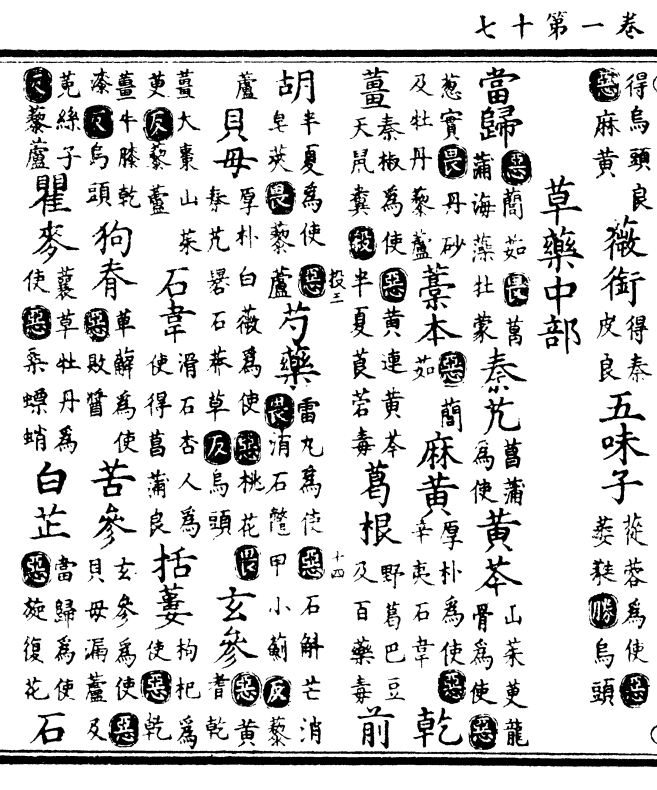 卷一第十七
得烏頭良惡麻黃薇銜得秦皮良五味子蓯蓉為使惡葳蕤勝烏頭
草藥中部
當歸惡䕡茹畏菖蒲海藻牡蒙秦艽菖蒲為使黃芩山茱萸龍骨為使惡
葱實畏丹砂及牡丹藜蘆藁本惡䕡茹麻黃厚朴為使惡辛夷石韋乾
薑秦椒為使惡黃連黃芩天鼠糞殺半夏莨菪毒葛根野葛巴豆及百藥毒前
投三
十四
胡半夏為使惡皂莢畏藜蘆芍藥雷丸為使惡石斛芒消畏消石鼈甲小薊反藜
蘆貝母厚朴白薇為使惡桃花畏秦艽礜石莽草反烏頭玄參惡黃耆乾
薑大棗山茱萸反藜蘆石韋滑石杏人為使得菖蒲良括蔞枸杞為使惡乾
薑牛膝乾漆反烏頭狗脊萆薢為使惡敗醬苦參玄參為使惡貝母漏蘆及
菟絲子反藜蘆瞿麥蘘草牡丹為使惡桑螵蛸白芷當歸為使惡旋復花石